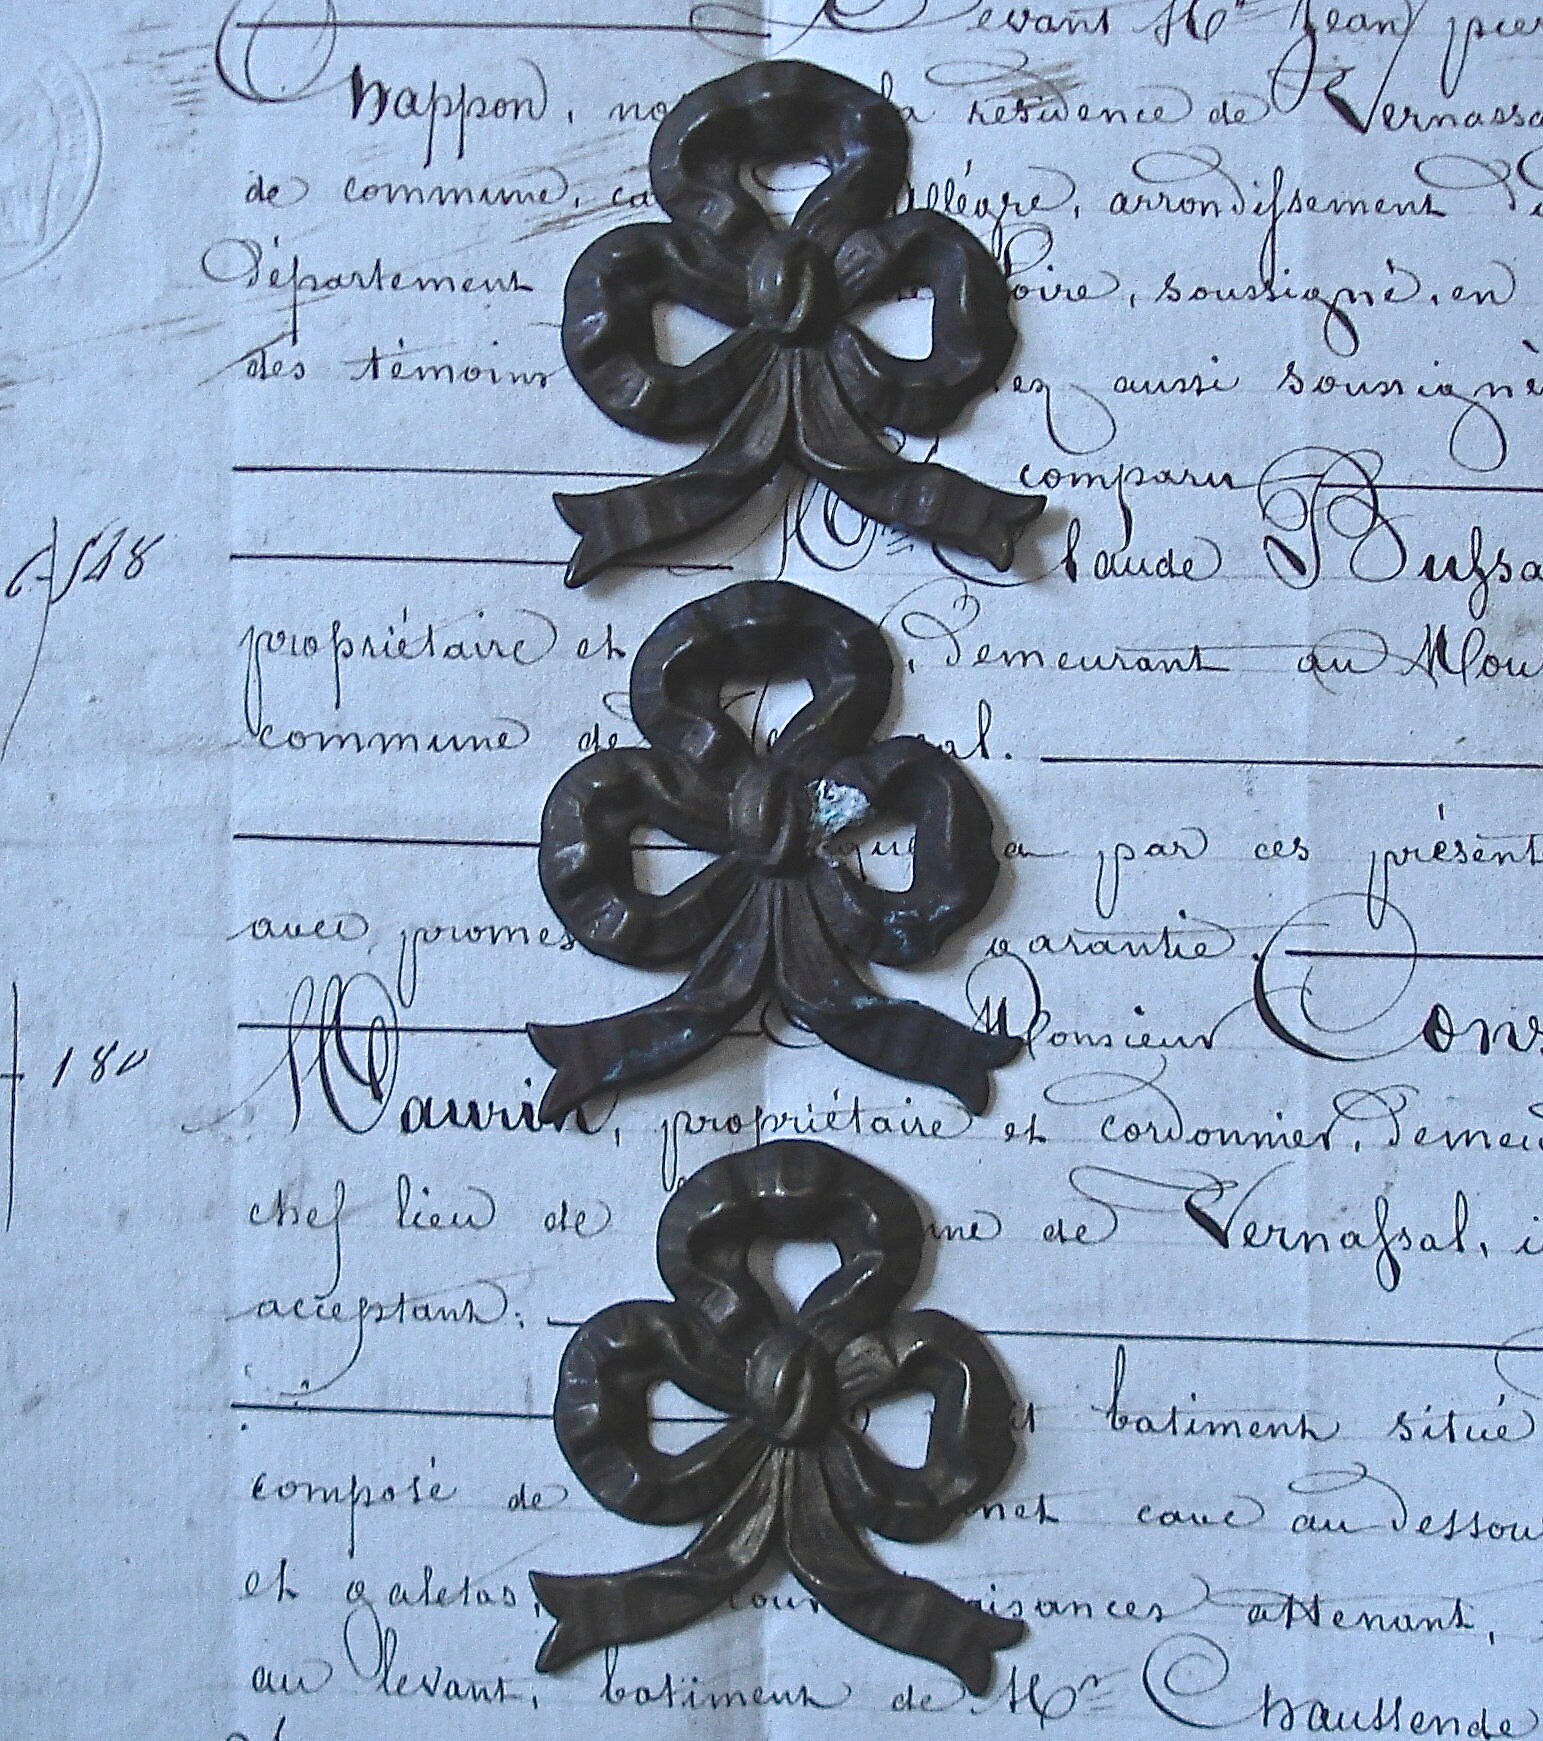 Devant Mr Jean pier
Chappon, no la résidence de Vernassa
de commune, ca Allègre, arrondissement d
département Loire, soussigné, en
des témoins aussi soussigné
comparu
Mr Claude Bussa
548
propriétaire et , demeurant au Mou
commune de al.
que a par ces présent
avec promes garantie.
Monsieur Cons
180
Maurin, propriétaire et cordonnier, demeu
chef lieu de ne de Vernassal, i
acceptant;
batiment situé
composé de cave au dessou
et galetas, cour aisances attenant,
au levant, batiment de Mr Chaussende